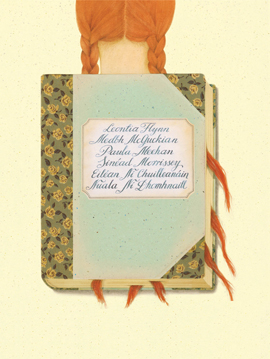 Leontia Flynn
Medbh McGuckian
Paula Meehan
Sinéad Morrissey
Eiléan Ní Chuilleanáin
Nuala Ní Dhomhnaill